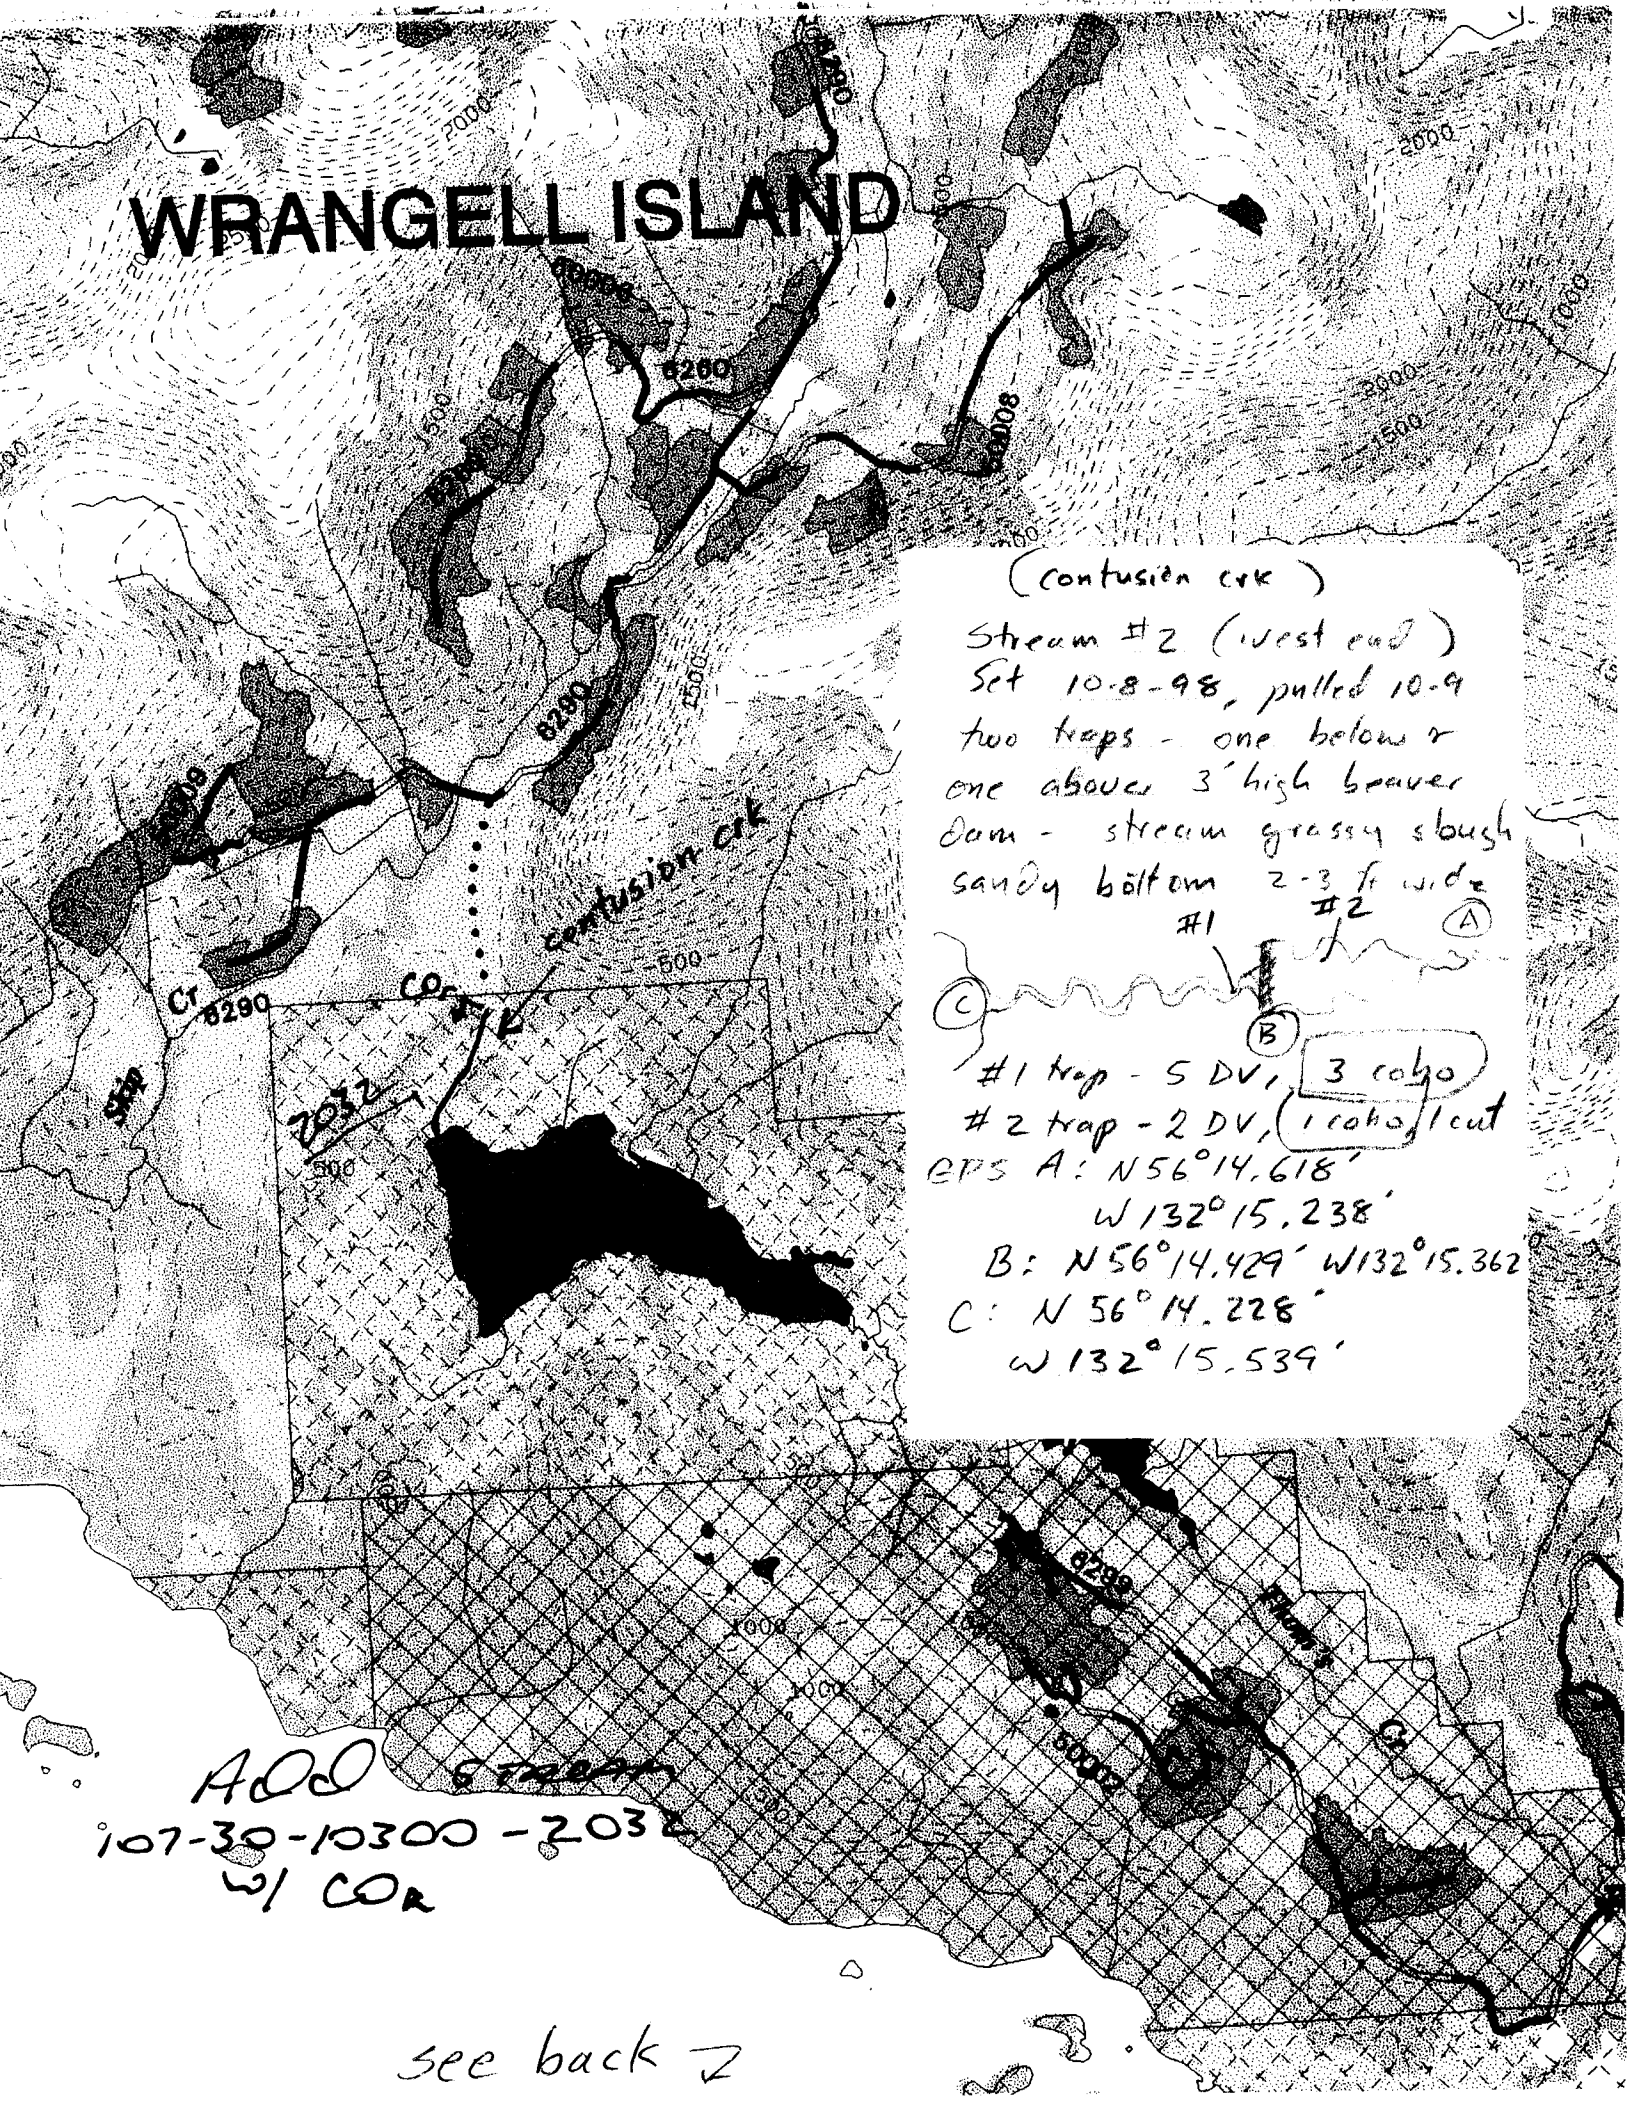 6290
2000
2000
WRANGELL ISLAND
500
1000
6260
2000
1500
1500
1500
6290
contusion crk
500
COR
Cr
6290
Skip
2032
500
(contusion crk)
Stream #2 (west end)
Set 10-8-98, pulled 10-9
two traps - one below &
one above 3' high beaver
dam - stream grassy slough
sandy bottom 2-3 ft wide
#1 #2 A
C
B
#1 trap - 5 DV, 3 coho
#2 trap - 2 DV, 1 coho, 1 cut
GPS A: N56°14.618'
W132°15.238'
B: N56°14.429' W132°15.362'
C: N 56°14.228'
W132°15.539'
6299
1000
Thom's
1000
Cr
50002
500
ADD STREAM
107-30-10300-2032
w/ COR
see back